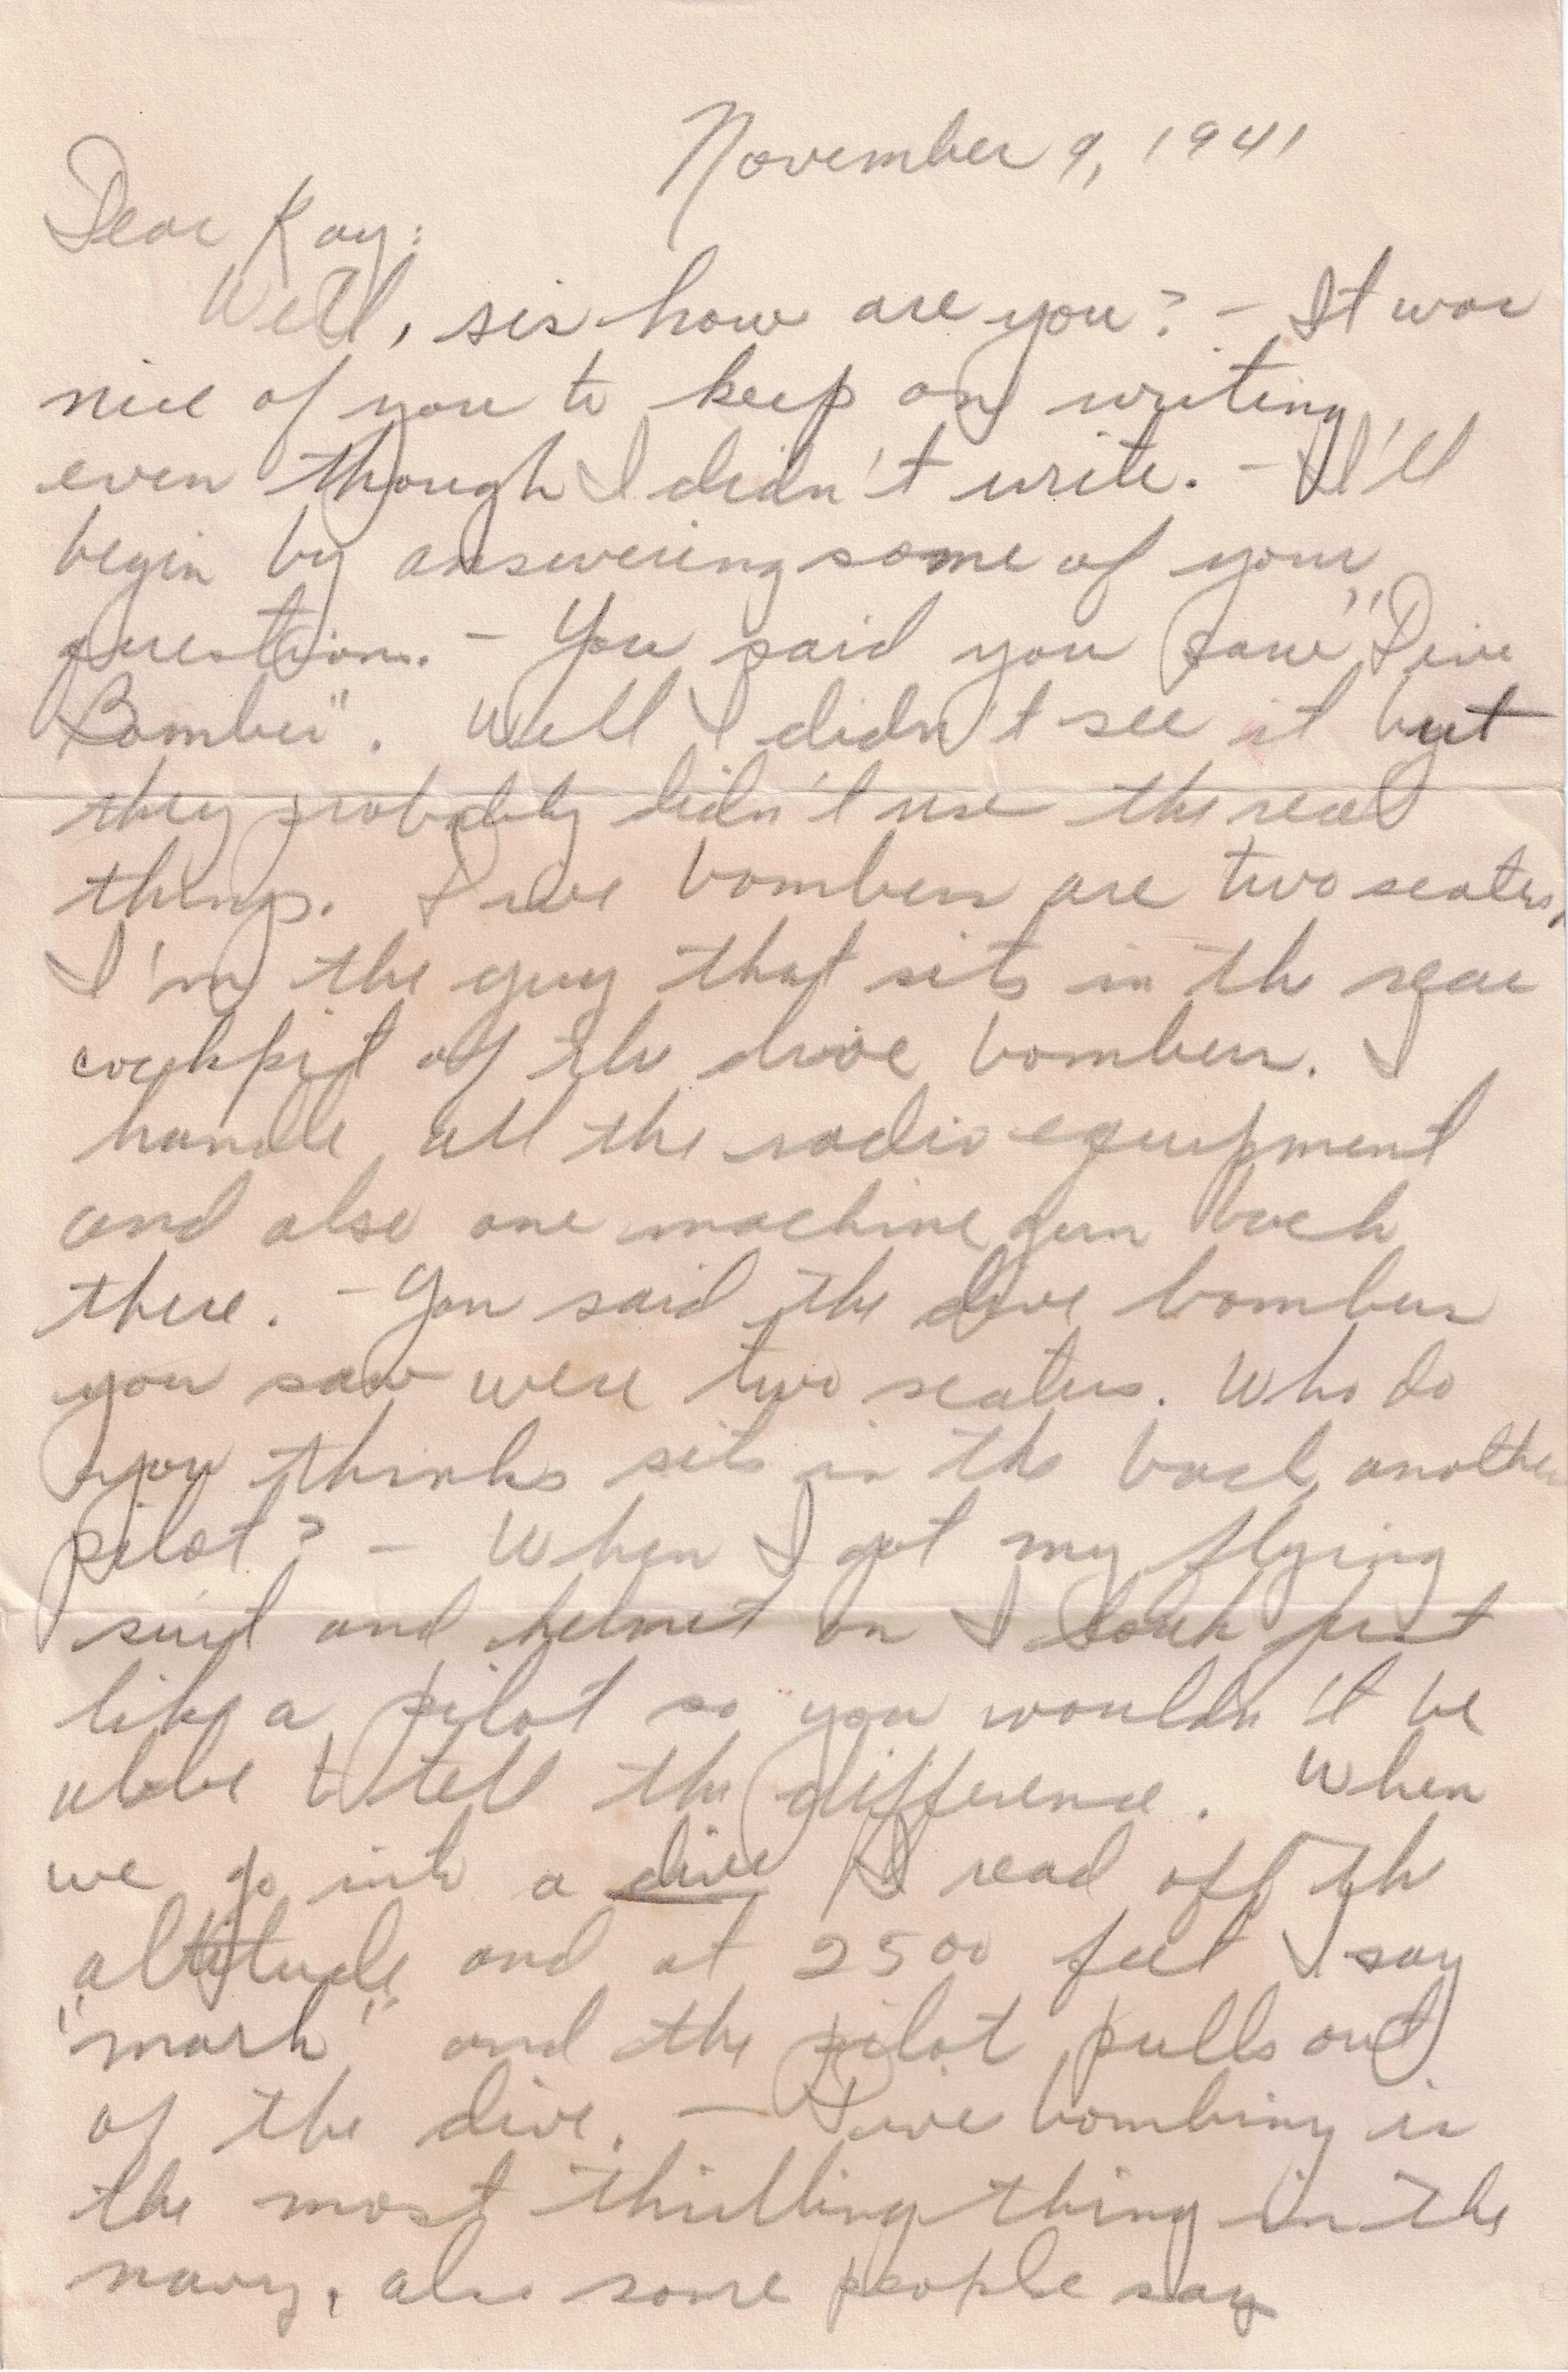 November 9, 1941
Dear Kay:
Well, sis how are you? - It was
nice of you to keep on writing
even though I didn't write. - I'll
begin by answering some of your
questions. - You said you saw "Dive
Bomber". Well I didn't see it but
they probably didn't use the real
things. Dive bombers are two seaters,
I'm the guy that sits in the rear
cockpit of the dive bombers. I
handle all the radio equipment
and also one machine gun back
there. - You said the dive bombers
you saw were two seaters. Who do
you thinks sits in the back, another
pilot? - When I got my flying
suit and helmet on I look just
like a pilot so you wouldn't be
able to tell the difference. When
we go into a dive I read off the
altitude and at 2500 feet I say
"mark" and the pilot pulls out
of the dive. - Dive bombing is
the most thrilling thing in the
navy, also some people say